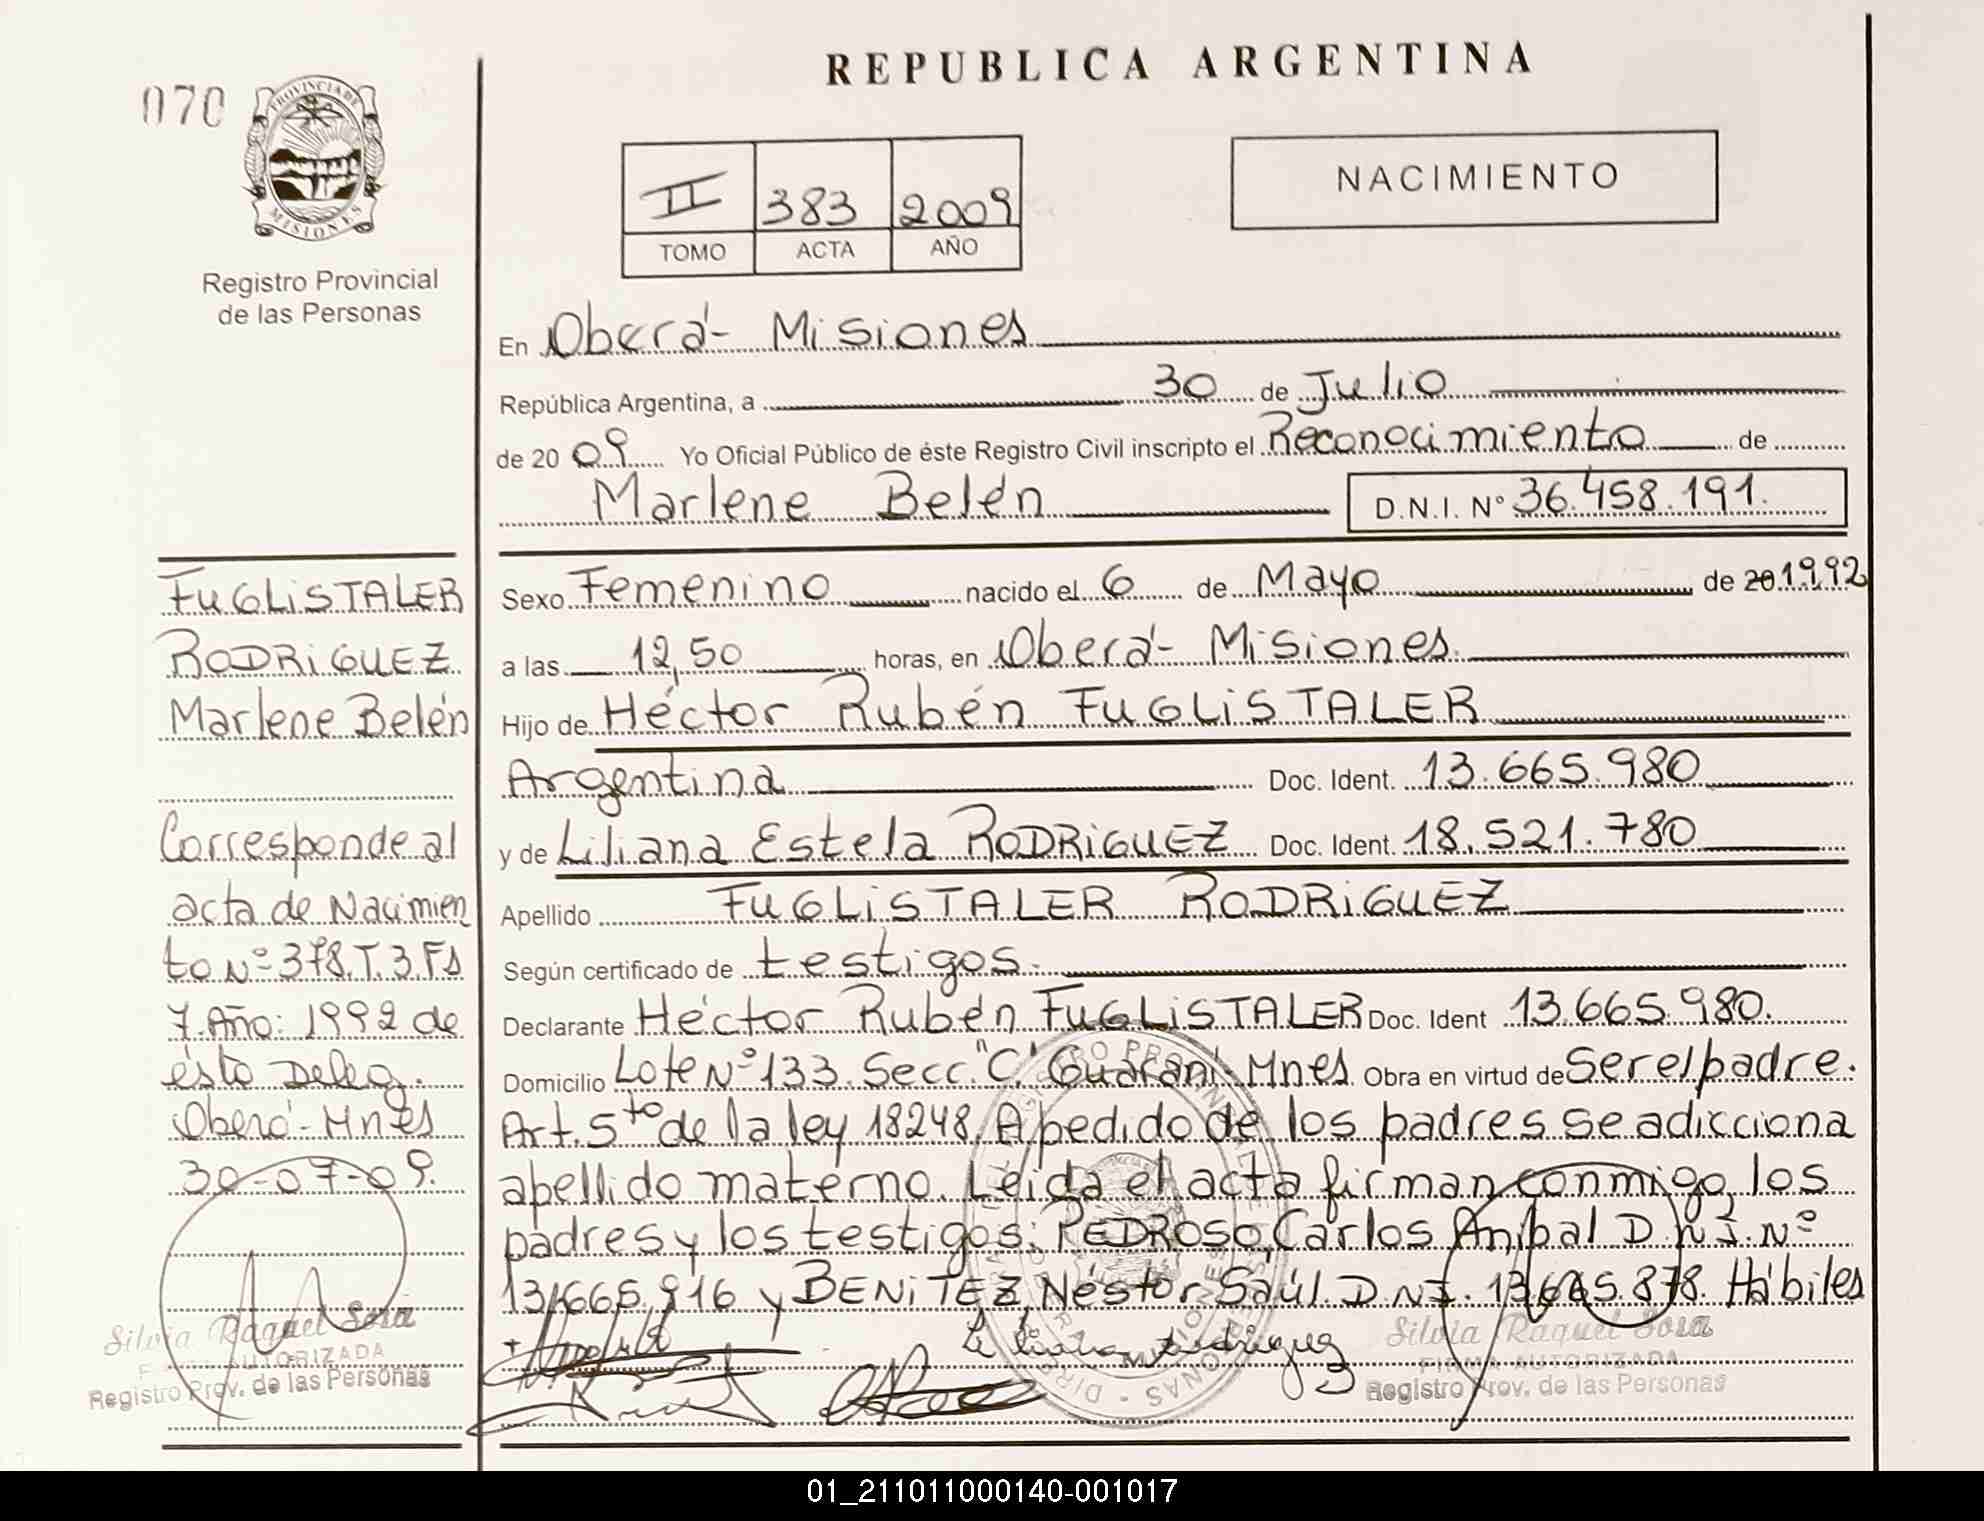 REPUBLICA ARGENTINA
070
PROVINCIA DE
MISIONES
Registro Provincial
de las Personas
II 383 2009
TOMO ACTA AÑO
NACIMIENTO
En Oberá - Misiones
República Argentina, a 30 de Julio
de 2009 Yo Oficial Público de éste Registro Civil inscripto el Reconocimiento de
Marlene Belén D.N.I. Nº 36.458.191.
Sexo Femenino nacido el 6 de Mayo de 20 1992
a las 12,50 horas, en Oberá - Misiones.
Hijo de Héctor Rubén FUGLISTALER
Argentina Doc. Ident. 13.665.980
y de Liliana Estela RODRIGUEZ Doc. Ident. 18.521.780
Apellido FUGLISTALER RODRIGUEZ
Según certificado de testigos.
Declarante Héctor Rubén FUGLISTALER Doc. Ident 13.665.980.
Domicilio Lote Nº 133. Secc. "C" Guaraní Mnes. Obra en virtud de Ser el padre.
Art. 5to de la ley 18248. A pedido de los padres se adicciona
apellido materno. Leida el acta firman conmigo, los
padres y los testigos: PEDROSO, Carlos Aníbal D.N.I. Nº
13.665.916 y BENITEZ, Néstor Saúl. D.N.I. 13.665.878. Hábiles
FUGLISTALER
RODRIGUEZ
Marlene Belén
Corresponde al
acta de Nacimien
to Nº 378. T. 3. Fs
7. Año: 1992 de
ésta Deleg.
Oberá - Mnes
30-07-09.
Silvia Raquel Sosa
FIRMA AUTORIZADA
Registro Prov. de las Personas
Liliana Rodriguez
Silvia Raquel Sosa
FIRMA AUTORIZADA
Registro Prov. de las Personas
01_211011000140-001017